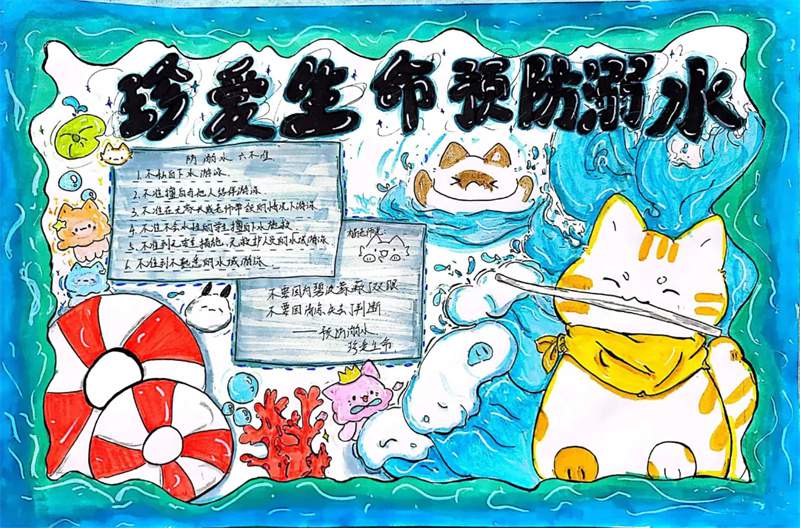 珍爱生命预防溺水
防溺水六不准
1.不私自下水游泳.
2.不准擅自与他人结伴游泳
3.不准在无家长或老师带领的情况下游泳
4.不准不会水性的学生擅自下水施救
5.不准到无安全措施、无救护人员的水域游泳
6.不准到不熟悉的水域游泳
不要因为碧波荡漾
不要因清凉失去了判断
——预防溺水
珍爱生命